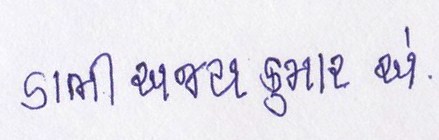 ડાભી અજય કુમાર એ.